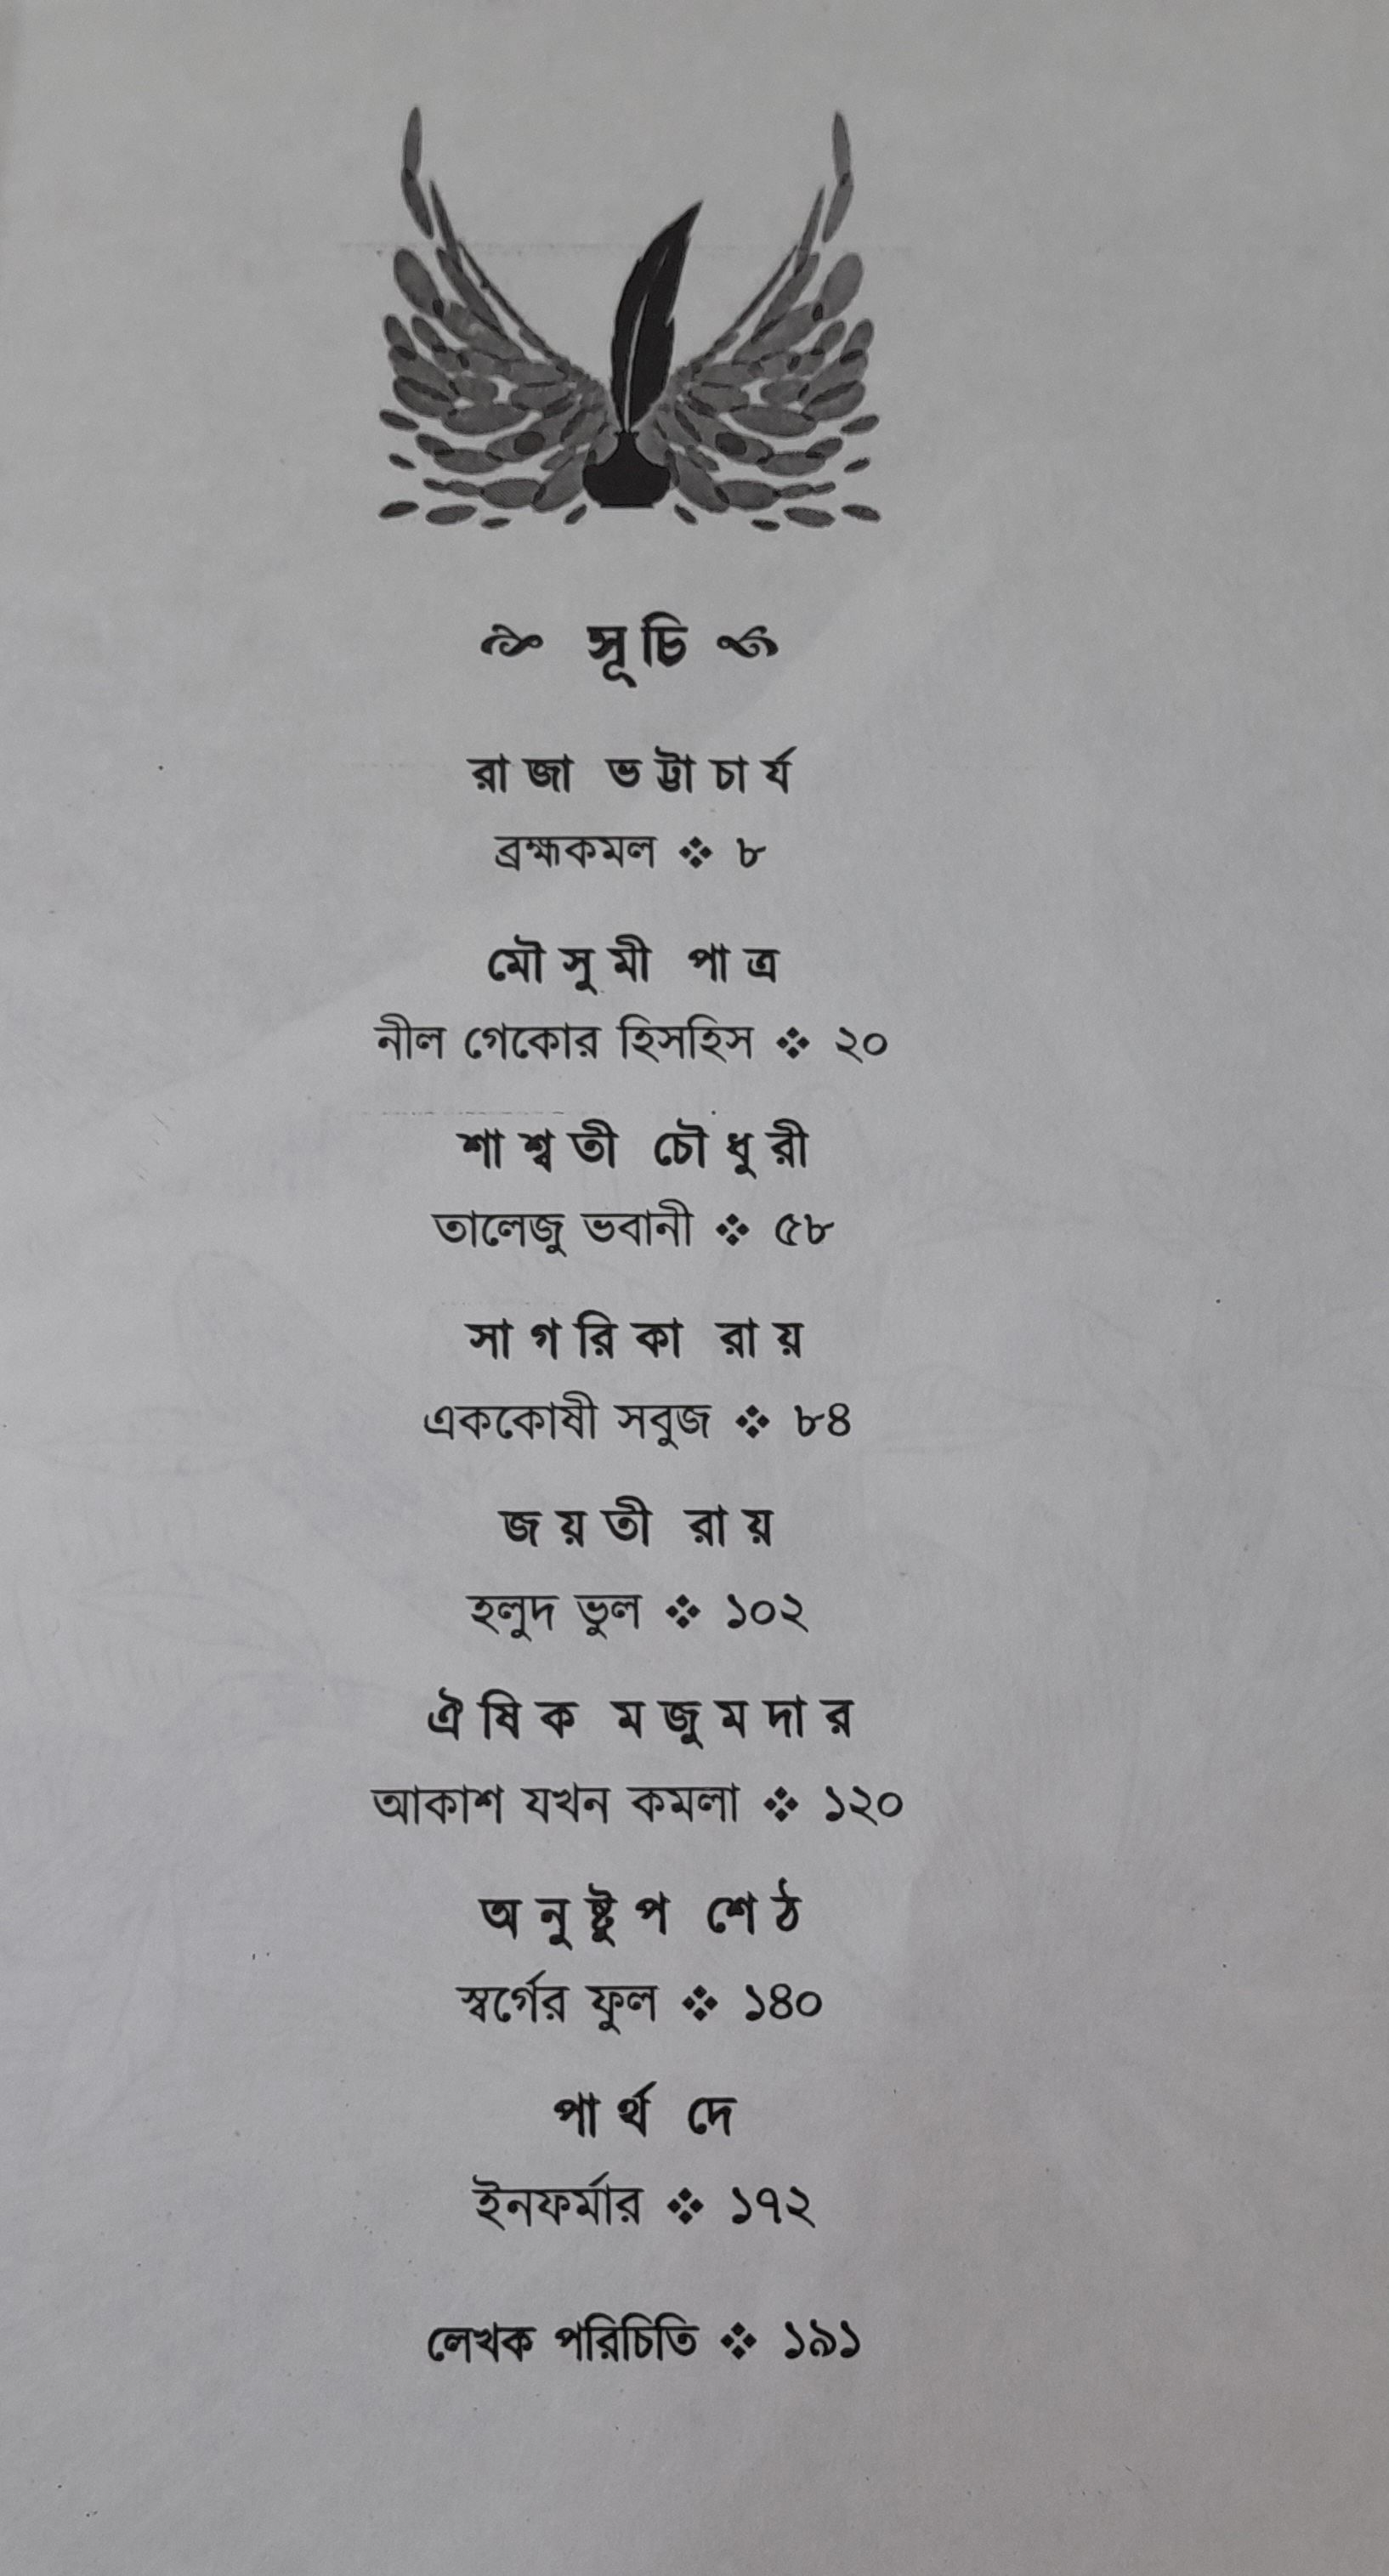 সূচি
রাজা ভট্টাচার্য
ব্রহ্মকমল ❖ ৮
মৌসুমী পাত্র
নীল গেকোর হিসহিস ❖ ২০
শাশ্বতী চৌধুরী
তালেজু ভবানী ❖ ৫৮
সাগরিকা রায়
এককোষী সবুজ ❖ ৮৪
জয়তী রায়
হলুদ ভুল ❖ ১০২
ঐষিক মজুমদার
আকাশ যখন কমলা ❖ ১২০
অনুষ্টুপ শেঠ
স্বর্গের ফুল ❖ ১৪০
পার্থ দে
ইনফর্মার ❖ ১৭২
লেখক পরিচিতি ❖ ১৯১